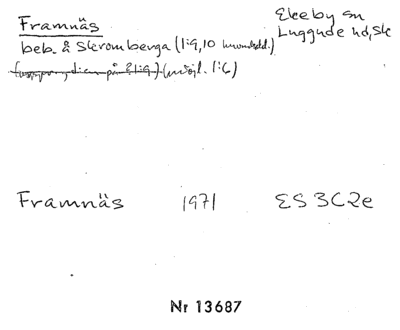 Framnäs
Ekeby sn
Luggude hd, Sk
beb. å Skromberga (1:9, 10
(möjl. 1:6)
Framnäs 1971 ES 3C2e
Nr 13687